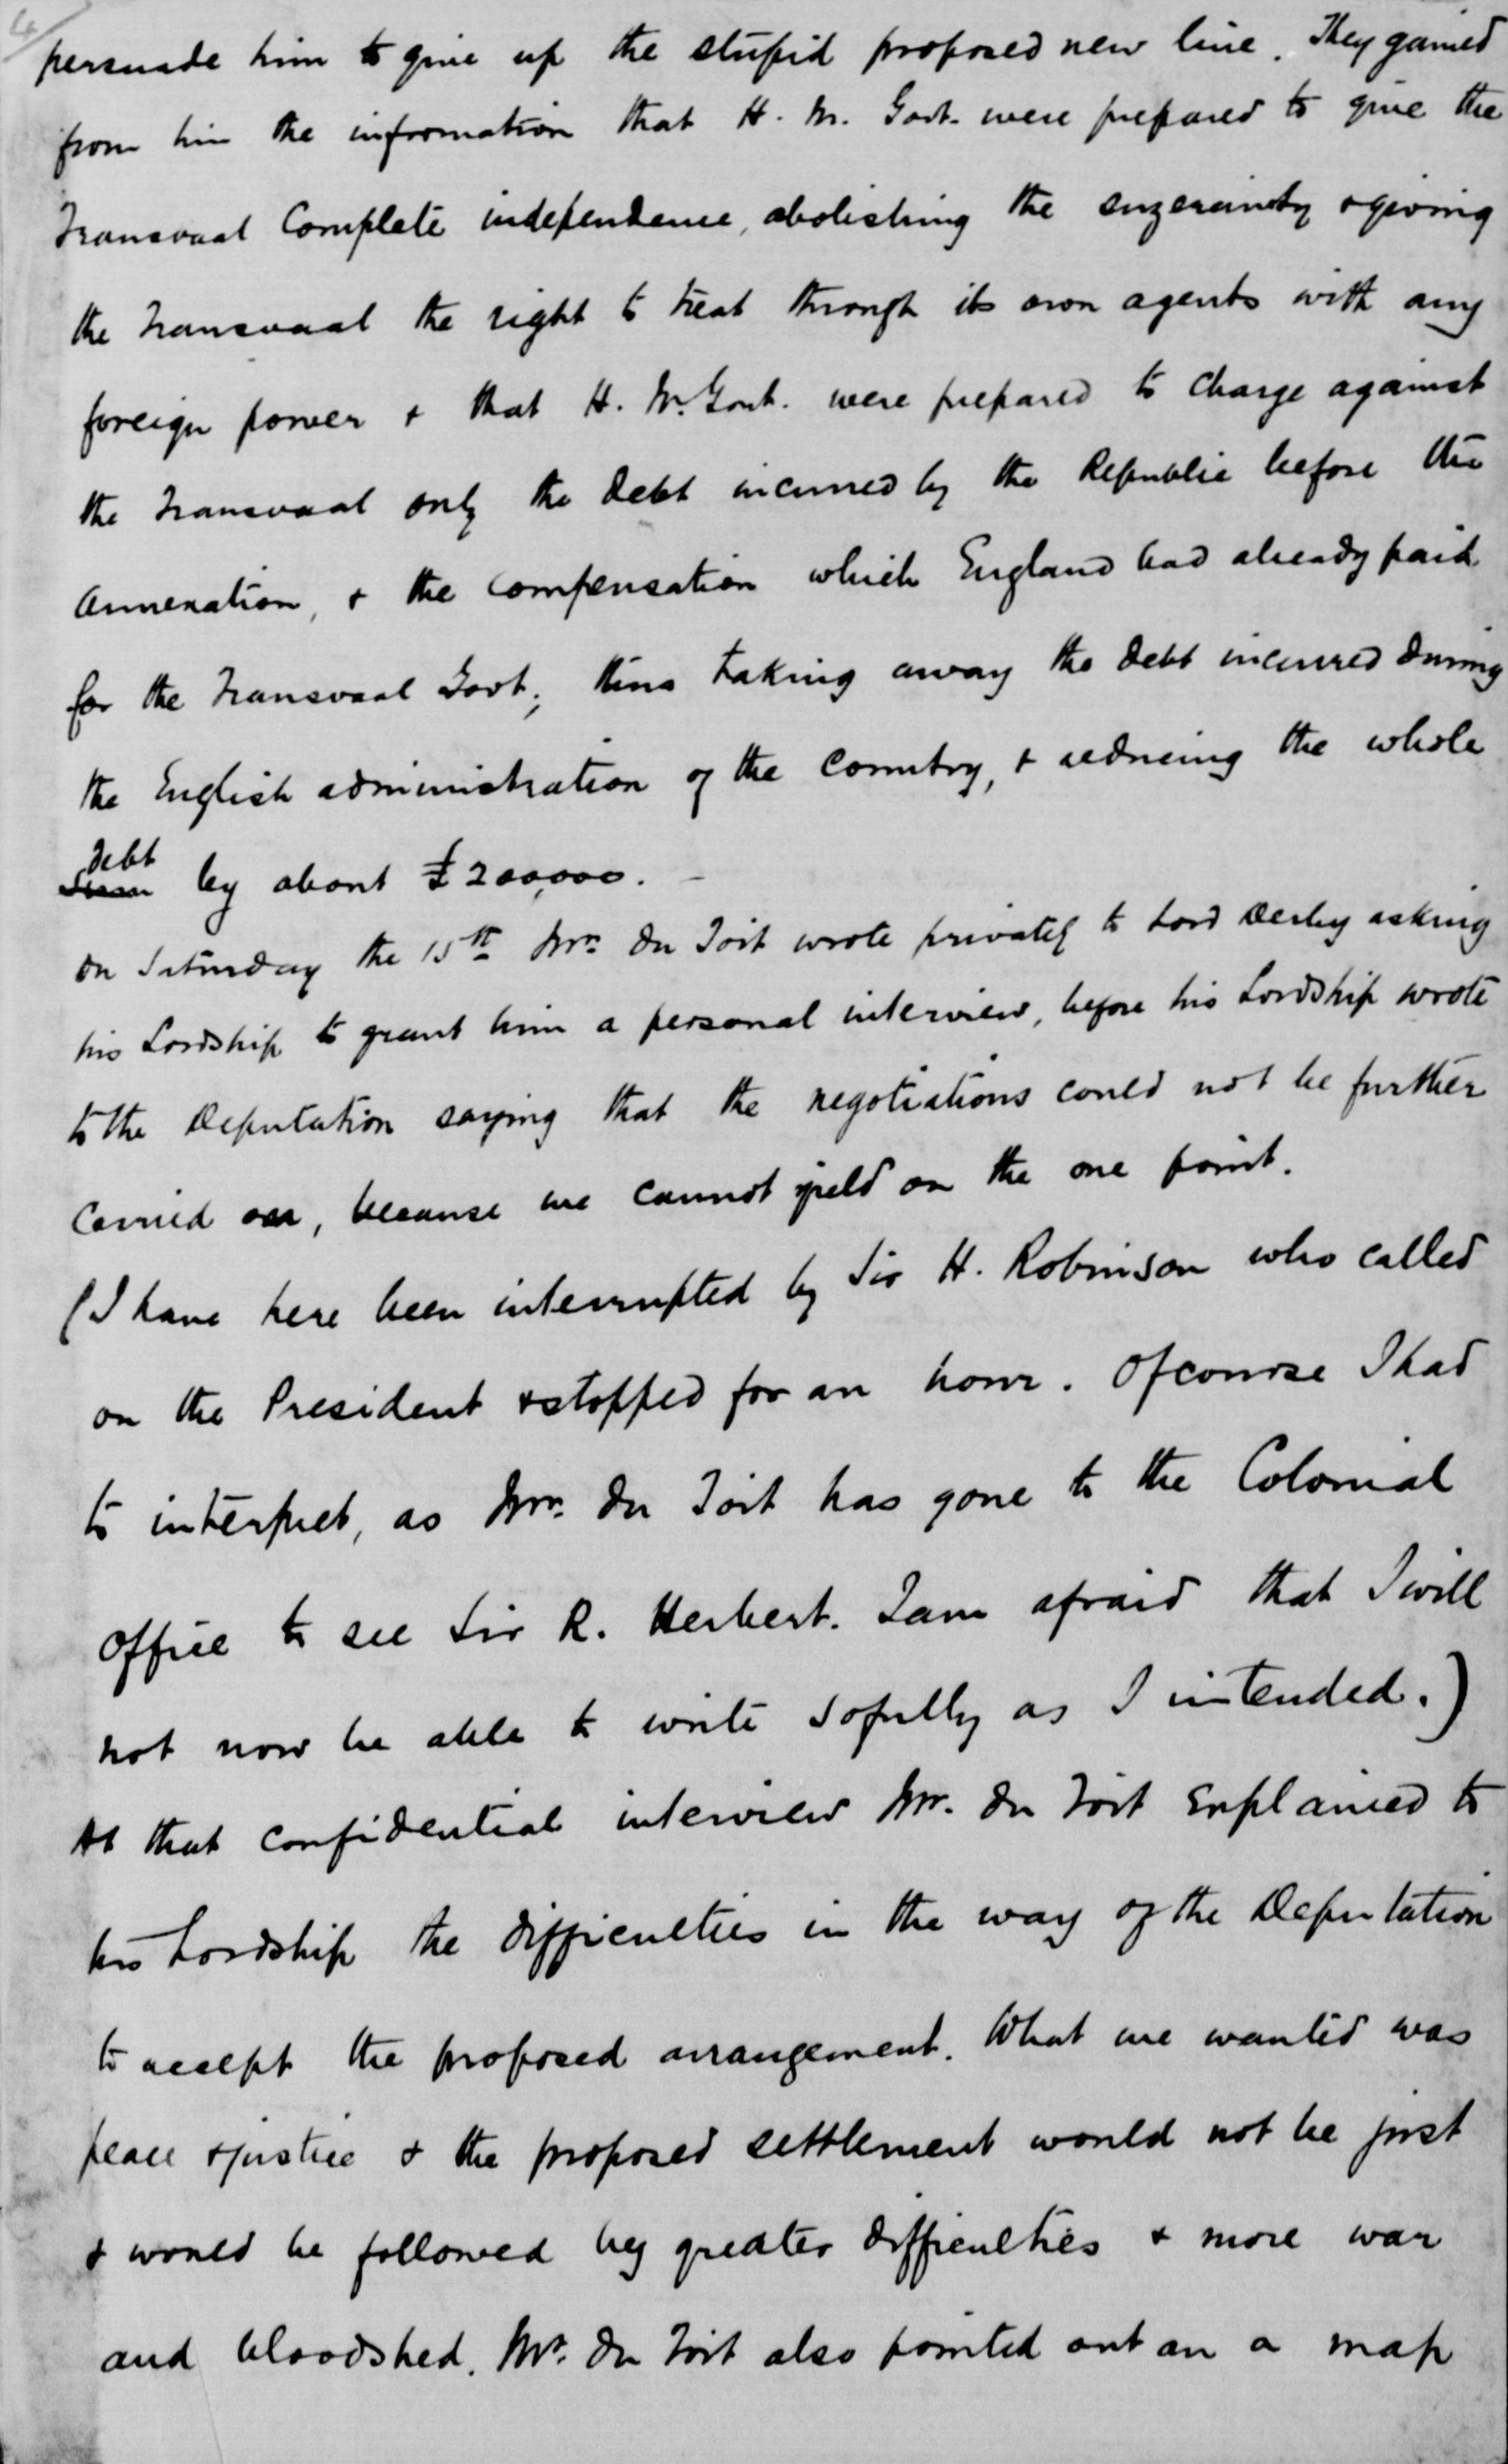 4/
persuade him to give up the stupid proposed new line. They gained
from him the information that H. M. Govt. were prepared to give the
Transvaal Complete independence, abolishing the suzerainty & giving
the Transvaal the right to treat through its own agents with any
foreign power & that H. M. Govt. were prepared to charge against
the Transvaal only the debt incurred by the Republic before the
Annexation, & the compensation which England had already paid
for the Transvaal Govt; thus taking away the debt incurred during
the English administration of the country, & reducing the whole
debt
Sum by about £200,000. –
On Saturday the 15th Mr. Du Toit wrote privately to Lord Derby asking
his Lordship to grant him a personal interview, before his Lordship wrote
to the Deputation saying that the negotiations could not be further
carried on, because we cannot yield on the one point.
(I have here been interrupted by Sir H. Robinson who called
on the President & stopped for an hour. Of course I had
to interpret, as Mr. Du Toit has gone to the Colonial
Office to see Sir R. Herbert. I am afraid that I will
not now be able to write so fully as I intended.)
At that confidential interview Mr. Du Toit explained to
his Lordship the difficulties in the way of the Deputation
to accept the proposed arrangement. What we wanted was
peace & justice & the proposed settlement would not be just
& would be followed by greater difficulties & more war
and bloodshed. Mr. Du Toit also pointed out on a map